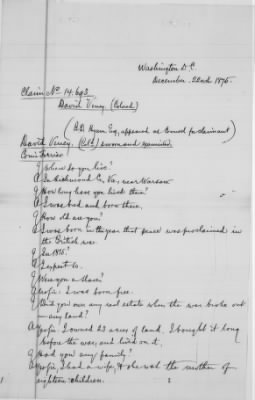 Washington D.C.
December 22nd 1876.
Claim No 14.693
David Viney. (Colored)
(A.D. Hyam Esq, appeared as Counsel for claimant)
David Viney, (Col'd) sworn and examined.
Q Where do you live?
A In Richmond Co, Va, near Warsaw
Q How long have you lived there?
A I was bred and born there.
Q How old are you?
A I was born in the year that peace was proclaimed in
the British war.
Q In 1815?
A I expect so.
Q Were you a slave?
A No sir, I was born free.
Q Did you own any real estate when the war broke out
- any land?
A Yes sir, I owned 23 acres of land. I bought it long
before the war, and lived on it.
Q Had you any family?
A Yes sir, I had a wife, & she was the mother of
eighteen children.